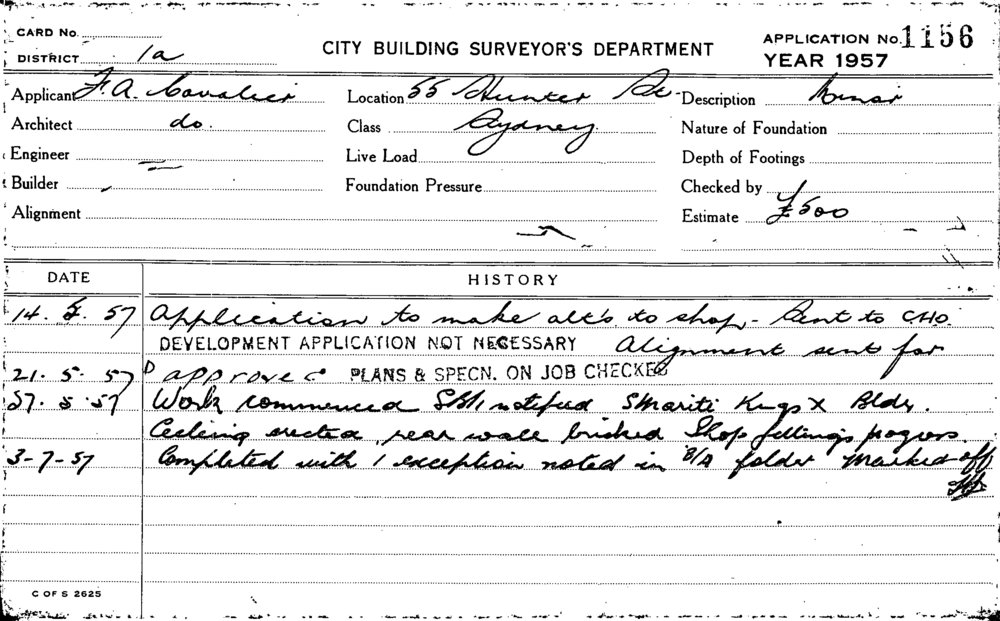 CARD No.
DISTRICT 1a
CITY BUILDING SURVEYOR'S DEPARTMENT
APPLICATION No. 1156
YEAR 1957
Applicant F. A. Cavalier
Location 55 Hunter St.
Description Minor
Architect do.
Class Sydney
Nature of Foundation
Engineer
Live Load
Depth of Footings
Builder
Foundation Pressure
Checked by
Alignment
Estimate £500
DATE
HISTORY
14. 5. 57 Application to make alt's to shop - Sent to CHO.
DEVELOPMENT APPLICATION NOT NECESSARY Alignment sent for
21. 5. 57 approved PLANS & SPECN. ON JOB CHECKED
27. 5. 57 Work commenced notified Kings X Bldg.
Ceiling erected, rear wall bricked Shop fittings progress.
3-7-57 Completed with 1 exception noted in B/A folder Marked off
C OF S 2625